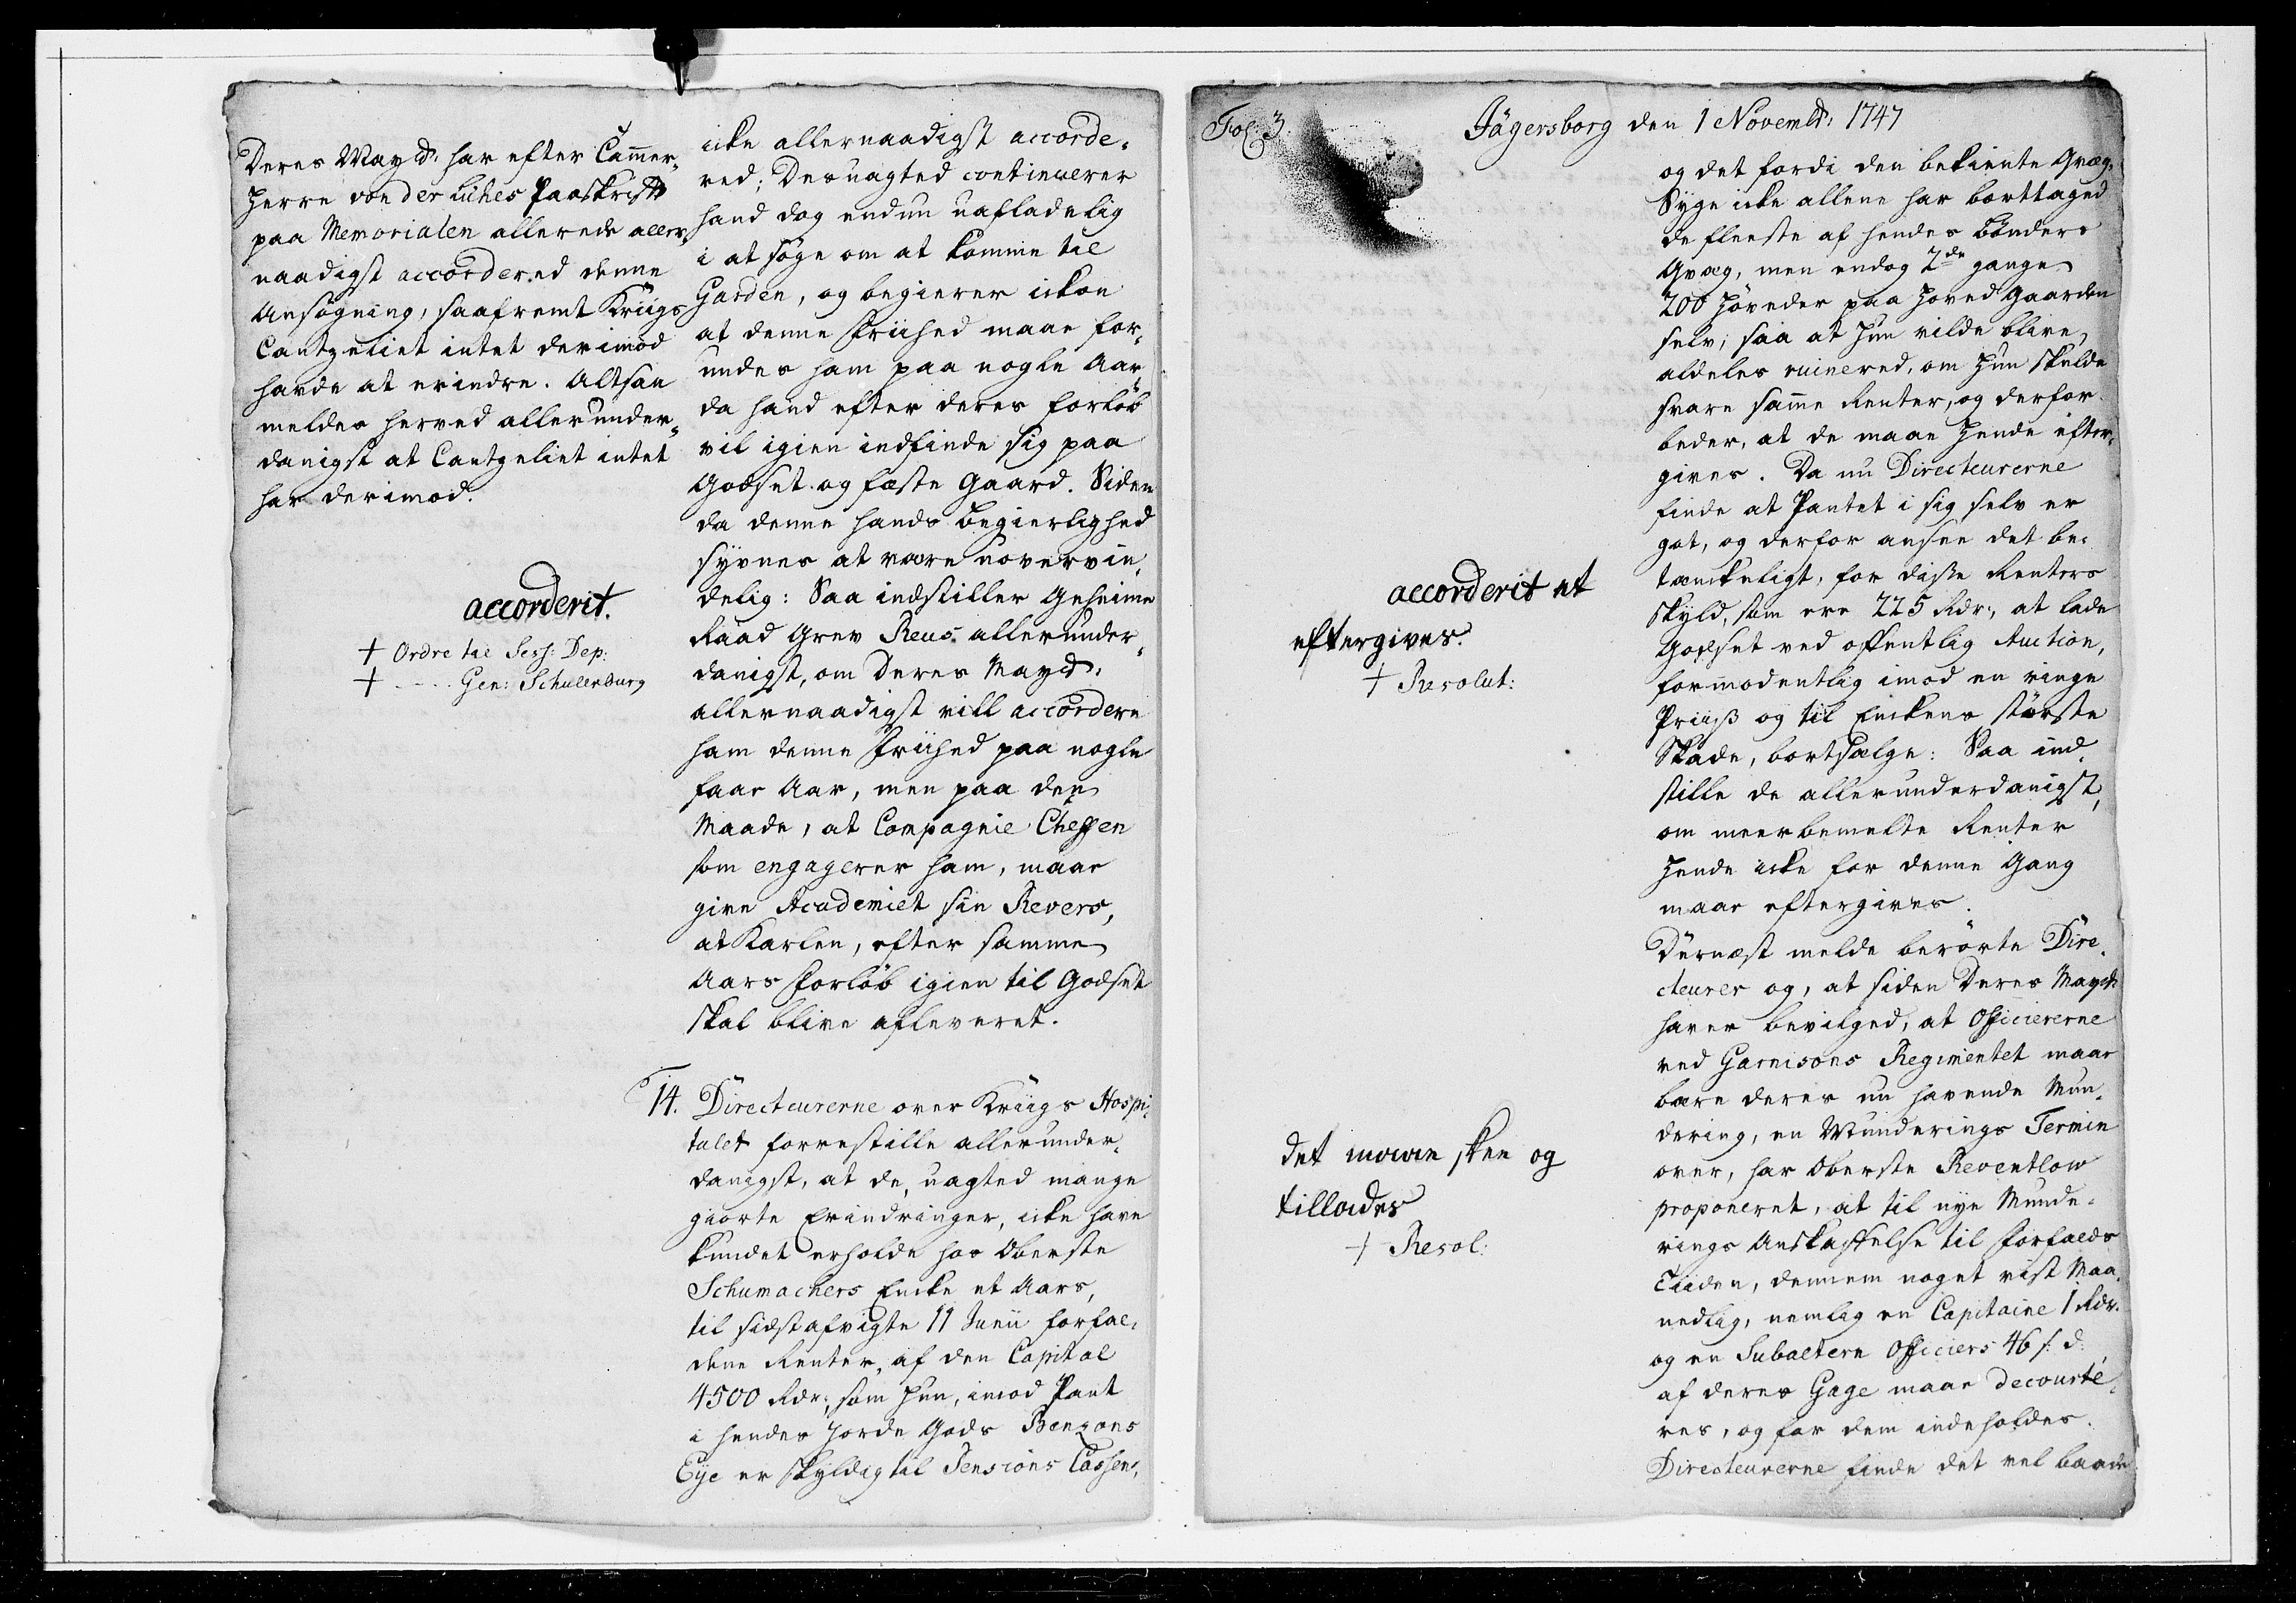 Deres Mayt: har efter Cammer„
Herre von der Lühes Paaskrifft
paa Memorialen allerede aller„
naadigst accordered denne
Ansøgning, saafremt Kriigs
Cantzeliet intet derimod
havde at erindre. Altsaa
meldes herved allerunder„
danigst at Cantzeliet intet
har derimod.
accorderit.
† Ordre til Sess: Dep:
† - - - - Gen: Schulenburg
icke allernaadigst accorde„
red; Desuagted continuerer
hand dog endnu uafladelig
i at søge om at komme til
Garden, og begierer ickon
at denne Friihed maae for„
undes ham paa nogle Aar
da hand efter deres Forløb
vil igien indfinde sig paa
Godset og fæste Gaard. Siden
da denne hands Begierlighed
syvnes at være uovervin„
delig: Saa indstiller Geheime
Raad Grev Reus allerunder„
danigst, om Deres Mayt:
allernaadigst vill accordere
ham denne Friihed paa nogle
faae Aar, men paa den
Maade, at Compagnie Cheffen
som engagerer ham, maae
give Academiet sin Revers,
at Karlen, efter samme
Aars Forløb igien til Godset
skal blive afleveret.
14. Directeurerne over Kriigs Hospi„
talet forrestille allerunder„
danigst, at de, uagted mange
giorte Erindringer, icke have
kundet erholde hos Oberste
Schumachers Encke et Aars,
til sidstafvigte 11 Junii forfal„
dene Renter, af den Capital
4500 Rdr:, som hun, imod Pant
i hendes Jorde Gods Benzons
Eye er skyldig til Pensions Cassen,
Fol: 3.
Jägersborg den 1 Novembr: 1747
og det fordi den bekiente Qvæg„
Syge icke allene har borttaged
de fleeste af hendes Bønders
Qvæg, men endog 2de gange
200 Høveder paa Hoved Gaarden
selv; saa at hun vilde blive
aldeles ruinered, om hun skulde
svare samme Renter, og derfor
beder, at de maae hende efter„
gives. Da nu Directeurerne
finde at Pantet i sig selv er
got, og derfor ansee det be„
tænckeligt, for disse Renters
skyld, som ere 225 Rdr:, at lade
Godset ved offentlig Auction,
formodentlig imod en ringe
Priiss og til Enckens største
Skade, bortsælge: Saa ind„
stille de allerunderdanigst,
om meerbemelte Renter
hende icke for denne Gang
maae eftergives.
Dernæst melde berørte Dire„
cteurer og, at siden Deres Mayt:
haver bevilged, at Officiererne
ved Garnisons Regimentet maae
bære deres nu havende Mun„
dering, en Munderings Termin
over, har Oberste Reventlow
proponeret, at til nye Munde„
rings Anskaffelse til Forfalds
Tiiden, dennem noget vist Maa„
nedlig, nemlig en Capitaine 1 Rdr:
og en Subaltern Officiers 46 s. d.,
af deres Gage maae decourte„
res, og for dem indeholdes.
Directeurerne finde det vel baade
accorderit at
eftergives.
† Resolut:
det maae skee og
tillades
† Resol: